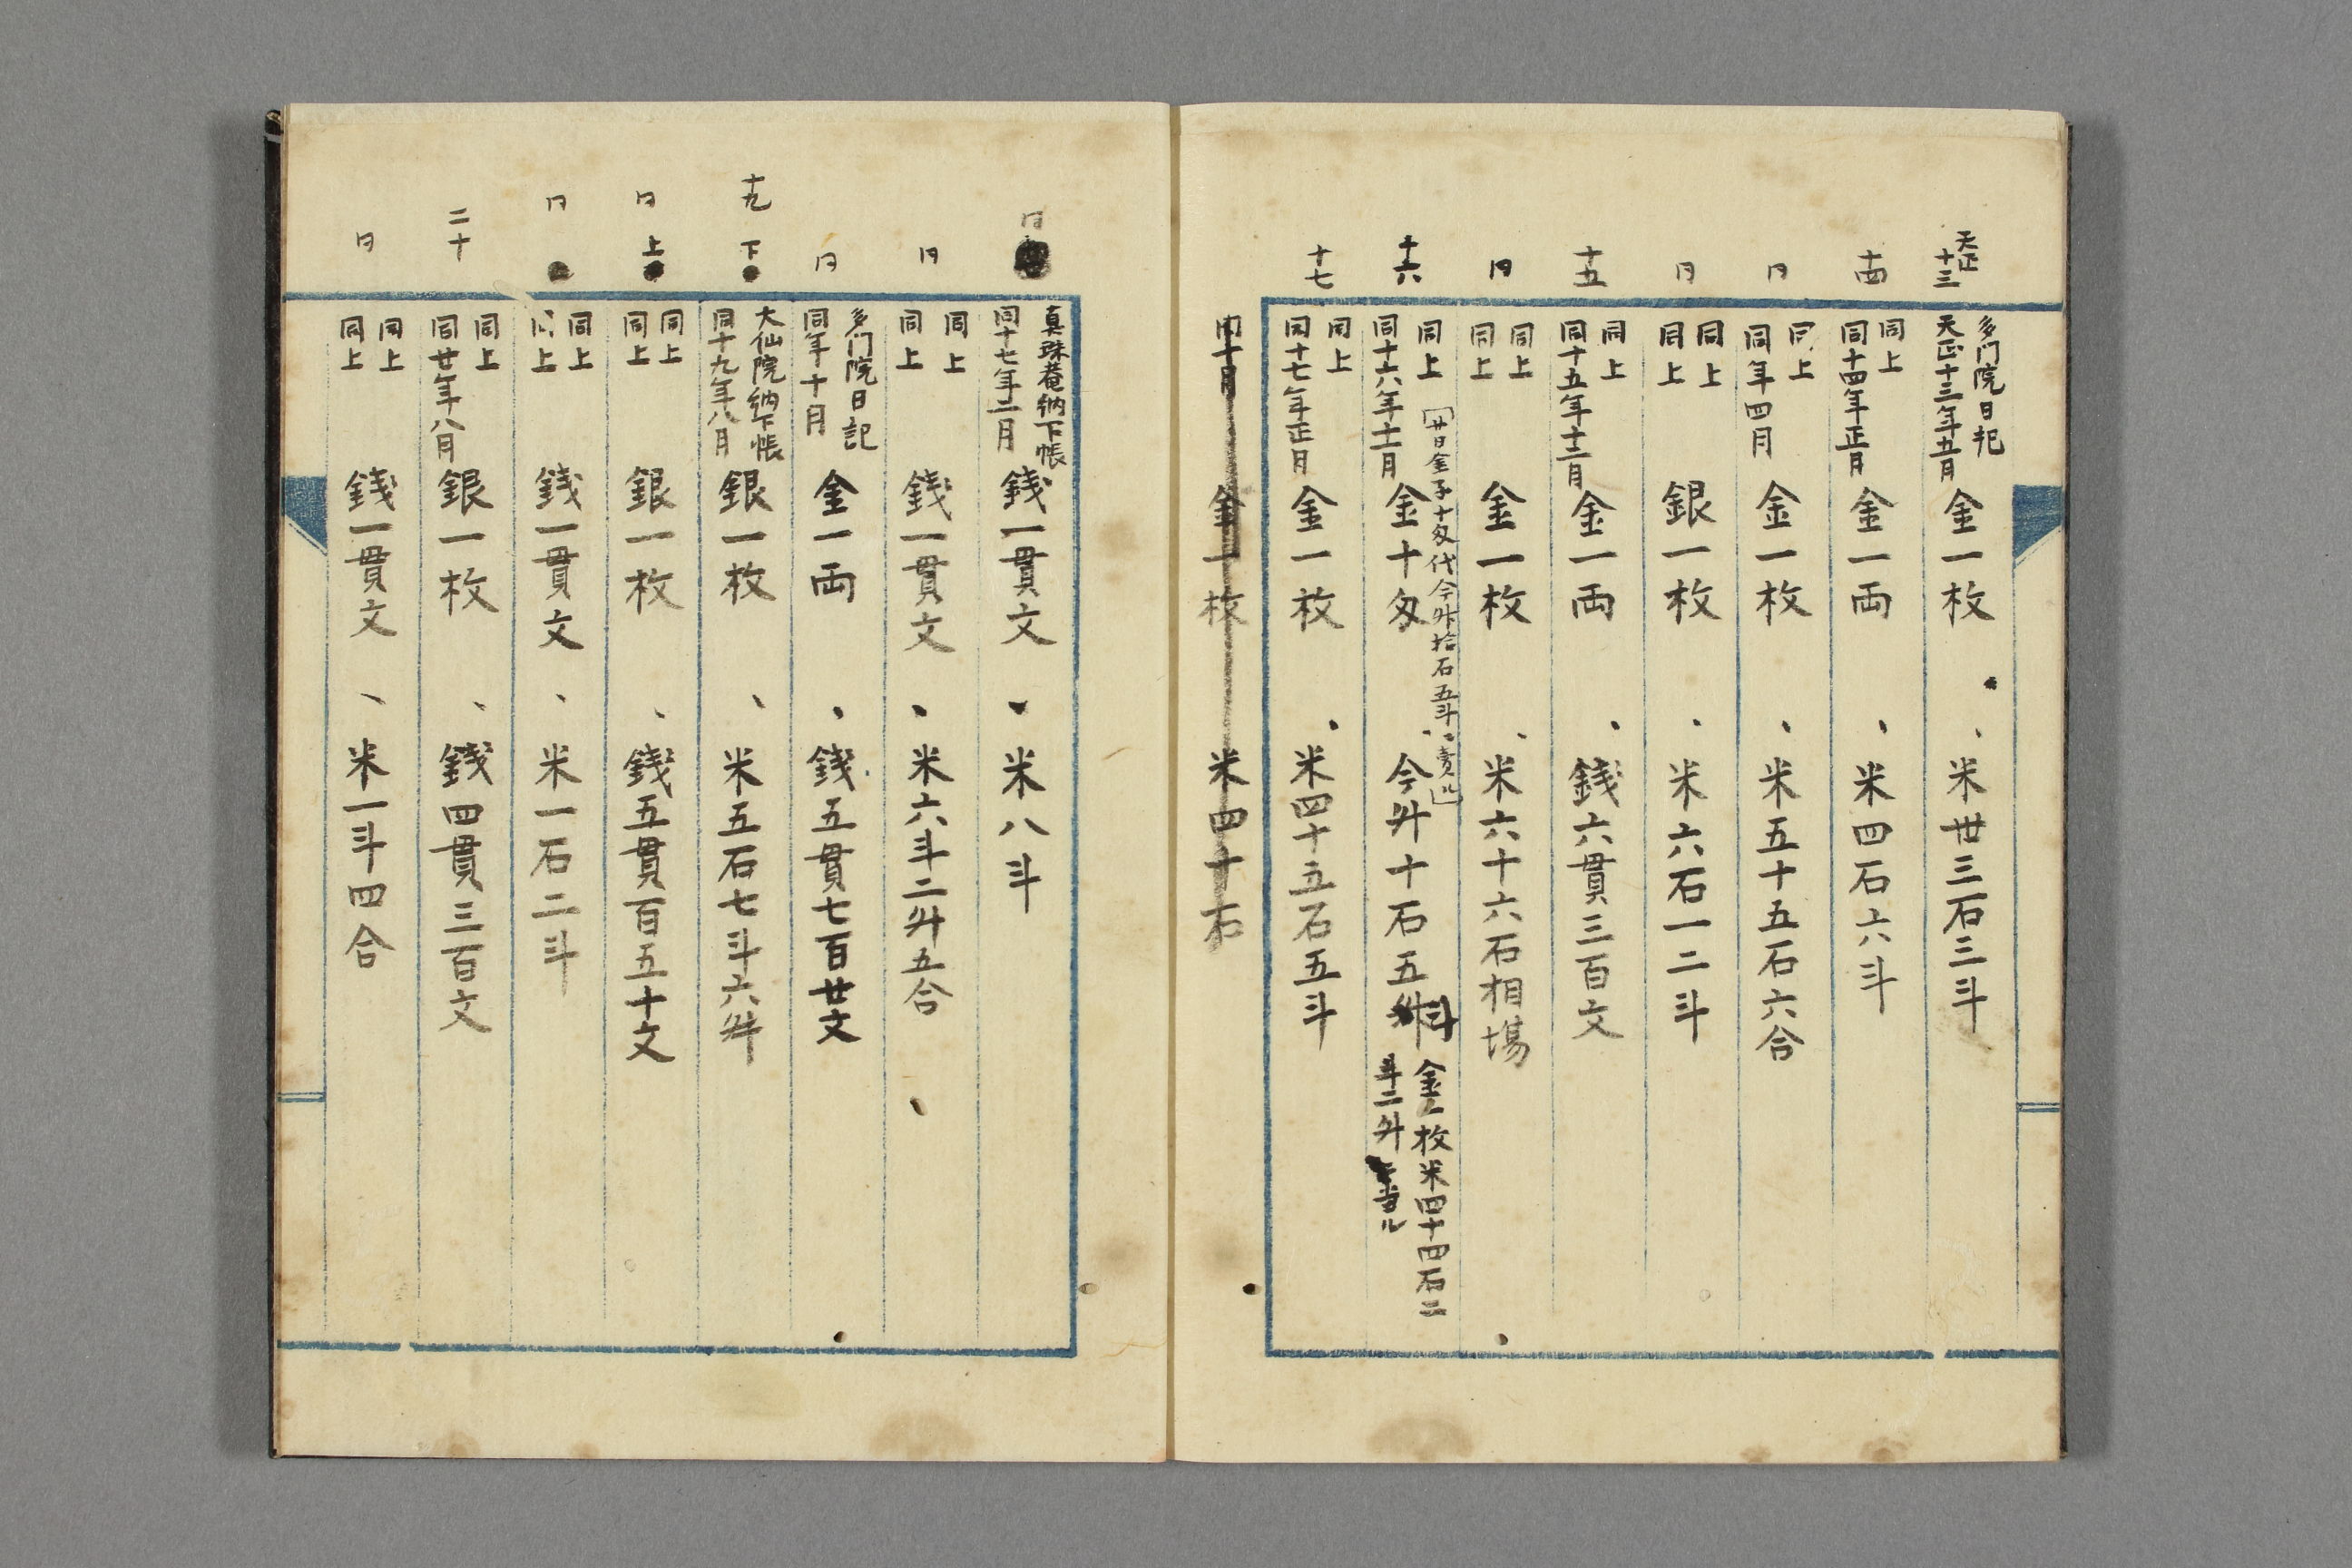 天正
十三
多門院日記
天正十三年五月
金一枚 、米卅三石三斗
十四
同上
同十四年正月
金一両 、米四石六斗
同
同上
同年四月
金一枚 、米五十五石六合
同
同上
同上
銀一枚 、米六石一二斗
十五
同上
同十五年十二月
金一両 、銭六貫三百文
同
同上
同上
金一枚 、米六十六石相場
十六
同上
「廿日金子十匁代今舛拾石五斗ニ売ル」
同十六年十一月
金十匁 、今舛十石五斗
金一枚米四十四石二
斗二舛ニ当ル
十七
同上
同十七年正月
金一枚 、米四十五石五斗
同十月 金一枚 米四十石
同
真珠菴納下帳
同十七年二月
銭一貫文 、米八斗
同
同上
同上
銭一貫文 、米六斗二舛五合
同
多門院日記
同年十月
金一両 、銭五貫七百廿文
十九 下
大仙院納下帳
同十九年八月
銀一枚 、米五石七斗六舛
同 上
同上
同上
銀一枚 、銭五貫百五十文
同
同上
同上
銭一貫文 、米一石二斗
二十
同上
同廿年八月
銀一枚 、銭四貫三百文
同
同上
同上
銭一貫文 、米一斗四合